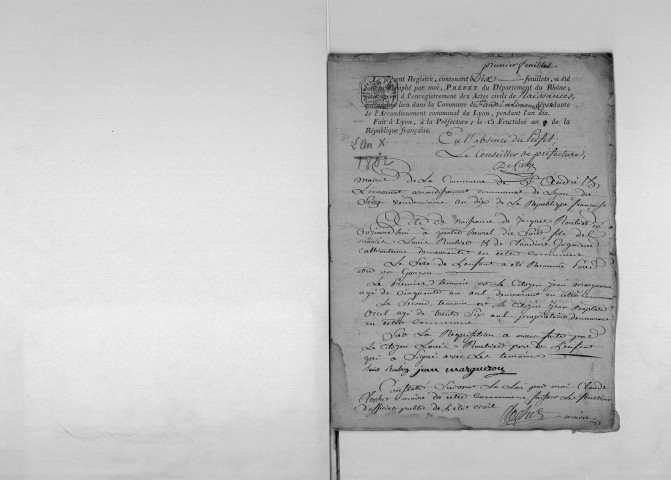 premier feuillet
Le présent Registre, contenant Dix feuillets, a été
par moi, PRÉFET du Département du Rhône,
à l'enregistrement des Actes civils de Naissances,
lieu dans la Commune de dépendante
de l'Arrondissement communal de Lyon, pendant l'an dix.
Fait à Lyon, à la Préfecture, le 15 Fructidor an 9 de la
République française.
En l'absence du Préfet,
L'an X.
Le Conseiller de préfecture,
1802
mairie de la Commune de St
Limonest arrondissement communal de Lyon du
vendemiaire an dix de la République française
Acte de naissance de Jacques
aujourdhui a quatre
marié Louis & de Claudine
cultivateur demeurants en cette commune
Le Sexe de Lenfant a été Reconnu
un Garçon
Le premier temoin est le Citoyen jean marguerou
agé de cinquante un ans demeurant en cette commune
Le Second temoin est le Citoyen jean Baptiste
agé de trente Six ans propriétaire demeurant
en cette commune
Sur la Requisition a nous faite par
Le Citoyen Louis pere de Lenfant
qui a Signé avec Les temoins
jean marguerou
Constaté Suivant La Loi par moi Claude
maire de cette commune faisant Les fonctions
d'officier public de L'état civil
maire